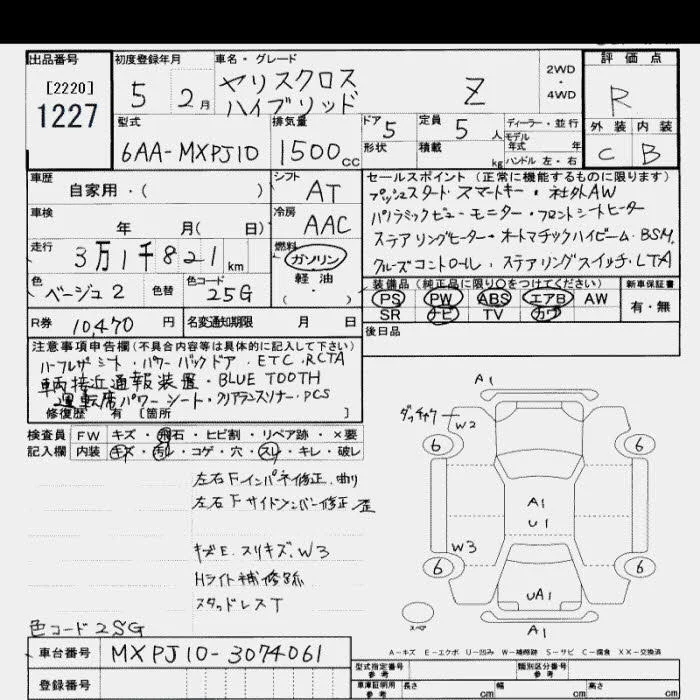 出品番号
[2220]
1227
初度登録年月
5 2月
車名・グレード
ヤリスクロス
ハイブリッド
Z
2WD
・
4WD
評価点
R
外装 内装
C B
型式
6AA-MXPJ10
排気量
1500cc
ドア 5
形状
定員 5人
積載 kg
ディーラー・並行
モデル
年式 年
ハンドル 左・右
車歴
自家用・( )
シフト
AT
車検
年 月( 日)
冷房
AAC
走行
3万1千821km
燃料
ガソリン
軽油
( )
色
ベージュ2
色替
色コード
2SG
R券 10,470 円
名変通知期限 月 日
セールスポイント(正常に機能するものに限ります)
プッシュスタート・スマートキー・社外AW
パノラミックビューモニター・フロントシートヒーター
ステアリングヒーター・オートマチックハイビーム・BSM.
クルーズコントロール、ステアリングスイッチ・LTA
装備品(純正品に限り○をつけてください)
新車保証書
PS PW ABS エアB AW
SR ナビ TV カワ
有・無
後日品
注意事項申告欄(不具合内容等は具体的に記入して下さい)
ハーフレザーシート・パワーバックドア・ETC・RCTA
車両接近通報装置・BLUE TOOTH
運転席パワーシート・クリアランスソナー・PCS
修復歴 有 [箇所 ]
検査員 FW キズ・飛石・ヒビ割・リペア跡・×要
記入欄 内装 キズ・汚レ・コゲ・穴・スレ・キレ・破レ
左右Fインパネ修正、曲り
左右Fサイドメンバー修正歪
キズE、スリキズ、W3
Hライト補修跡
スタッドレスT
色コード2SG
車台番号 MXPJ10-3074061
登録番号
A1
ダッチャク
W2
6 6
A1
U1
W3
6 6
UA1
スペア
A1
A-キズ E-エクボ U-凹み W-補修跡 S-サビ C-腐食 XX-交換済
型式指定番号
参考
類別区分番号
参考
車庫証明用
参考
長さ cm 幅 cm 高さ cm